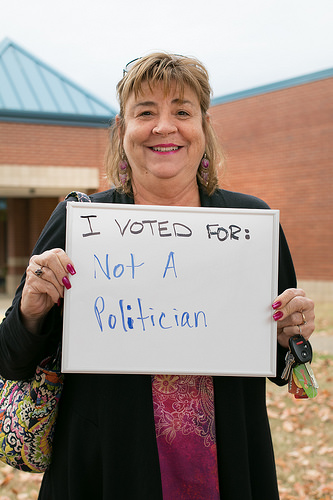 I VOTED FOR:
Not A
Politician